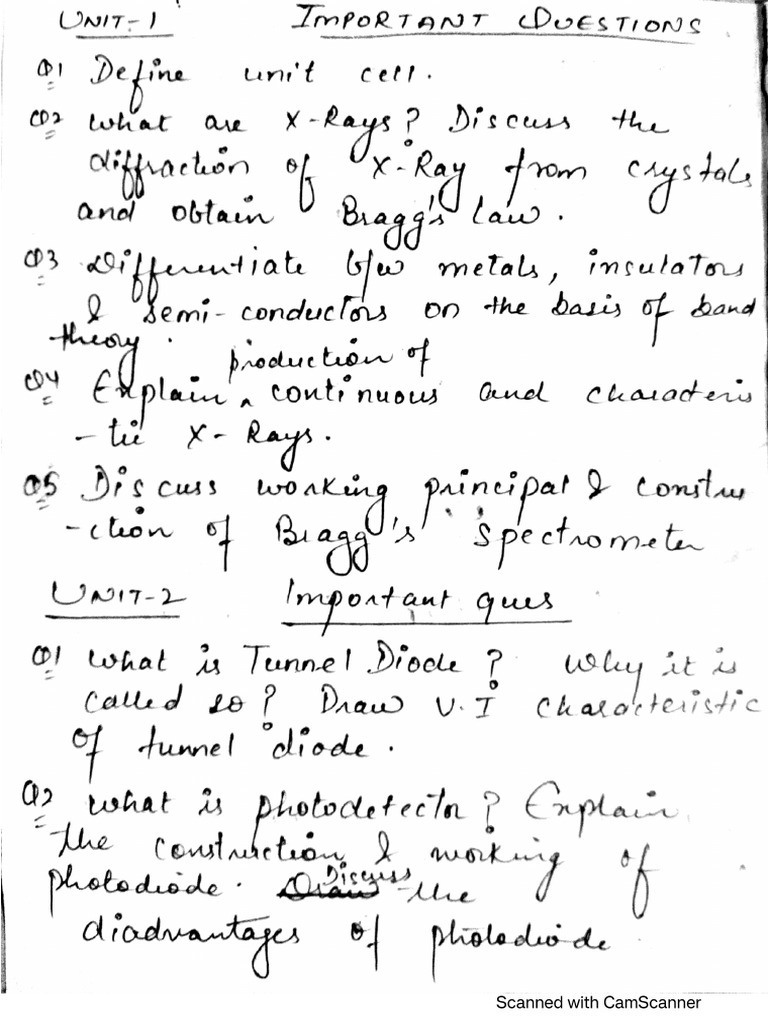 UNIT-1 IMPORTANT QUESTIONS
Q1 Define unit cell.
Q2 What are X-Rays? Discuss the
diffraction of X-Ray from crystals
and obtain Bragg's law.
Q3 Differentiate b/w metals, insulators
& semi-conductors on the basis of band
theory.
production of
Q4 Explain ^ continuous and characteris
-tic X-Rays.
Q5 Discuss working principal & constru
-ction of Bragg's spectrometer
UNIT-2 Important ques
Q1 What is Tunnel Diode? Why it is
called so? Draw V.I characteristic
of tunnel diode.
Q2 What is photodetector? Explain
the construction & working of
photodiode. Draw Discuss the
diadvantages of photodiode
Scanned with CamScanner